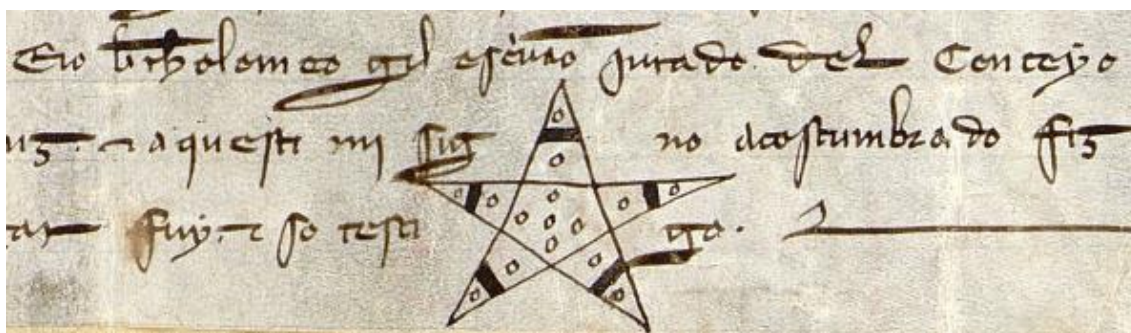 Eio bertholomeo gil escriuano jurado del Conceyo
aquesti mi sig no acostumbrado fiz
fuy. so testi go.